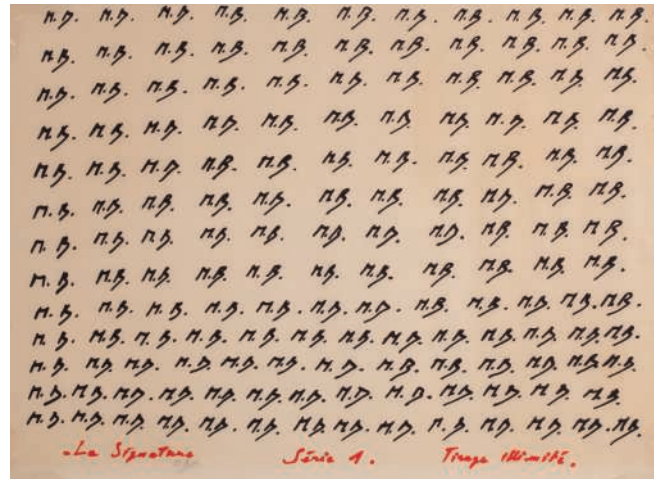 M.B. M.B. M.B. M.B. M.B. M.B. M.B. M.B. M.B. M.B. M.B.
M.B. M.B. M.B. M.B. M.B. M.B. M.B. M.B. M.B. M.B. M.B.
M.B. M.B. M.B. M.B. M.B. M.B. M.B. M.B. M.B. M.B. M.B.
M.B. M.B. M.B. M.B. M.B. M.B. M.B. M.B. M.B. M.B. M.B.
M.B. M.B. M.B. M.B. M.B. M.B. M.B. M.B. M.B. M.B. M.B.
M.B. M.B. M.B. M.B. M.B. M.B. M.B. M.B. M.B. M.B. M.B.
M.B. M.B. M.B. M.B. M.B. M.B. M.B. M.B. M.B. M.B. M.B.
M.B. M.B. M.B. M.B. M.B. M.B. M.B. M.B. M.B. M.B. M.B.
M.B. M.B. M.B. M.B. M.B. M.B. M.B. M.B. M.B. M.B. M.B. M.B.
M.B. M.B. M.B. M.B. M.B. M.B. M.B. M.B. M.B. M.B. M.B. M.B. M.B.
M.B. M.B. M.B. M.B. M.B. M.B. M.B. M.B. M.B. M.B. M.B. M.B. M.B.
M.B. M.B. M.B. M.B. M.B. M.B. M.B. M.B. M.B. M.B. M.B. M.B. M.B.
M.B. M.B. M.B. M.B. M.B. M.B. M.B. M.B. M.B. M.B. M.B. M.B. M.B. M.B.
La Signature Série 1. Tirage illimité.